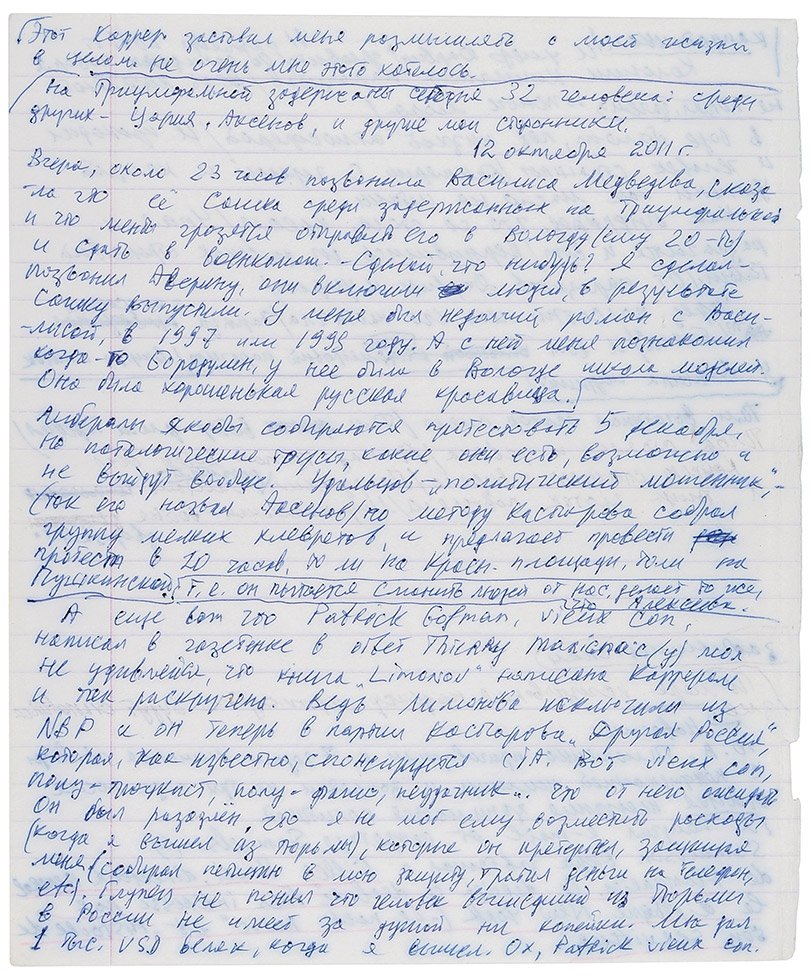 Этот Каррер заставил меня размышлять о моей жизни
в целом. Не очень мне этого хотелось.
На Триумфальной задержаны сегодня 32 человека: среди
других - Цария, Аксенов, и другие мои сторонники.
12 октября 2011 г.
Вчера, около 23 часов позвонила Василиса Медведева, сказа
-ла что её Сашка среди задержанных на Триумфальной
и что менты грозятся отправить его в Вологду (ему 20 ть)
и сдать в военкомат. - Сделай, что нибудь? Я сделал -
позвонил Аверину, они включили людей, в результате
Сашку выпустили. У меня был недолгий роман с Васи-
-лисой, в 1997 или 1998 году. А с ней меня познакомил
когда-то Бородулин, у неё была в Вологде школа моделей.
Она была хорошенькая русская красавица.
Либералы якобы собираются протестовать 5 декабря,
но патологические трусы, какие они есть, возможно и
не выйдут вообще. Удальцов - „политический мошенник",-
(так его назвал Аксенов) по методу Каспарова собрал
группу мелких клевретов, и предлагает провести
протест в 20 часов, то ли на Красн. площади, толи на
Пушкинской. Т.е. он пытается сманить людей от нас, делает то же,
что Алексеева.
А еще вот что Patrick Gofman, vieux con,
написал в газетенке в ответ Thierry Marignac (у) мол
не удивляйся, что книга „Limonov" написана Каррером
и так раскручена. Ведь Лимонова исключили из
NBP и он теперь в партии Каспарова „Другая Россия",
которая, как известно, спонсируется CIA. Вот vieux con,
полу-троцкист, полу-фашио, неудачник... что от него ожидать
Он был разозлён, что я не мог ему возместить расходы
(когда я вышел из тюрьмы), которые он претерпел, защищая
меня (собирал петицию в мою защиту, тратил деньги на телефон,
etc). Глупец не понял что человек вышедший из тюрьмы
в России не имеет за душой ни копейки. Мне дал
1 тыс. USD Белак, когда я вышел. Ох, Patrick vieux con.